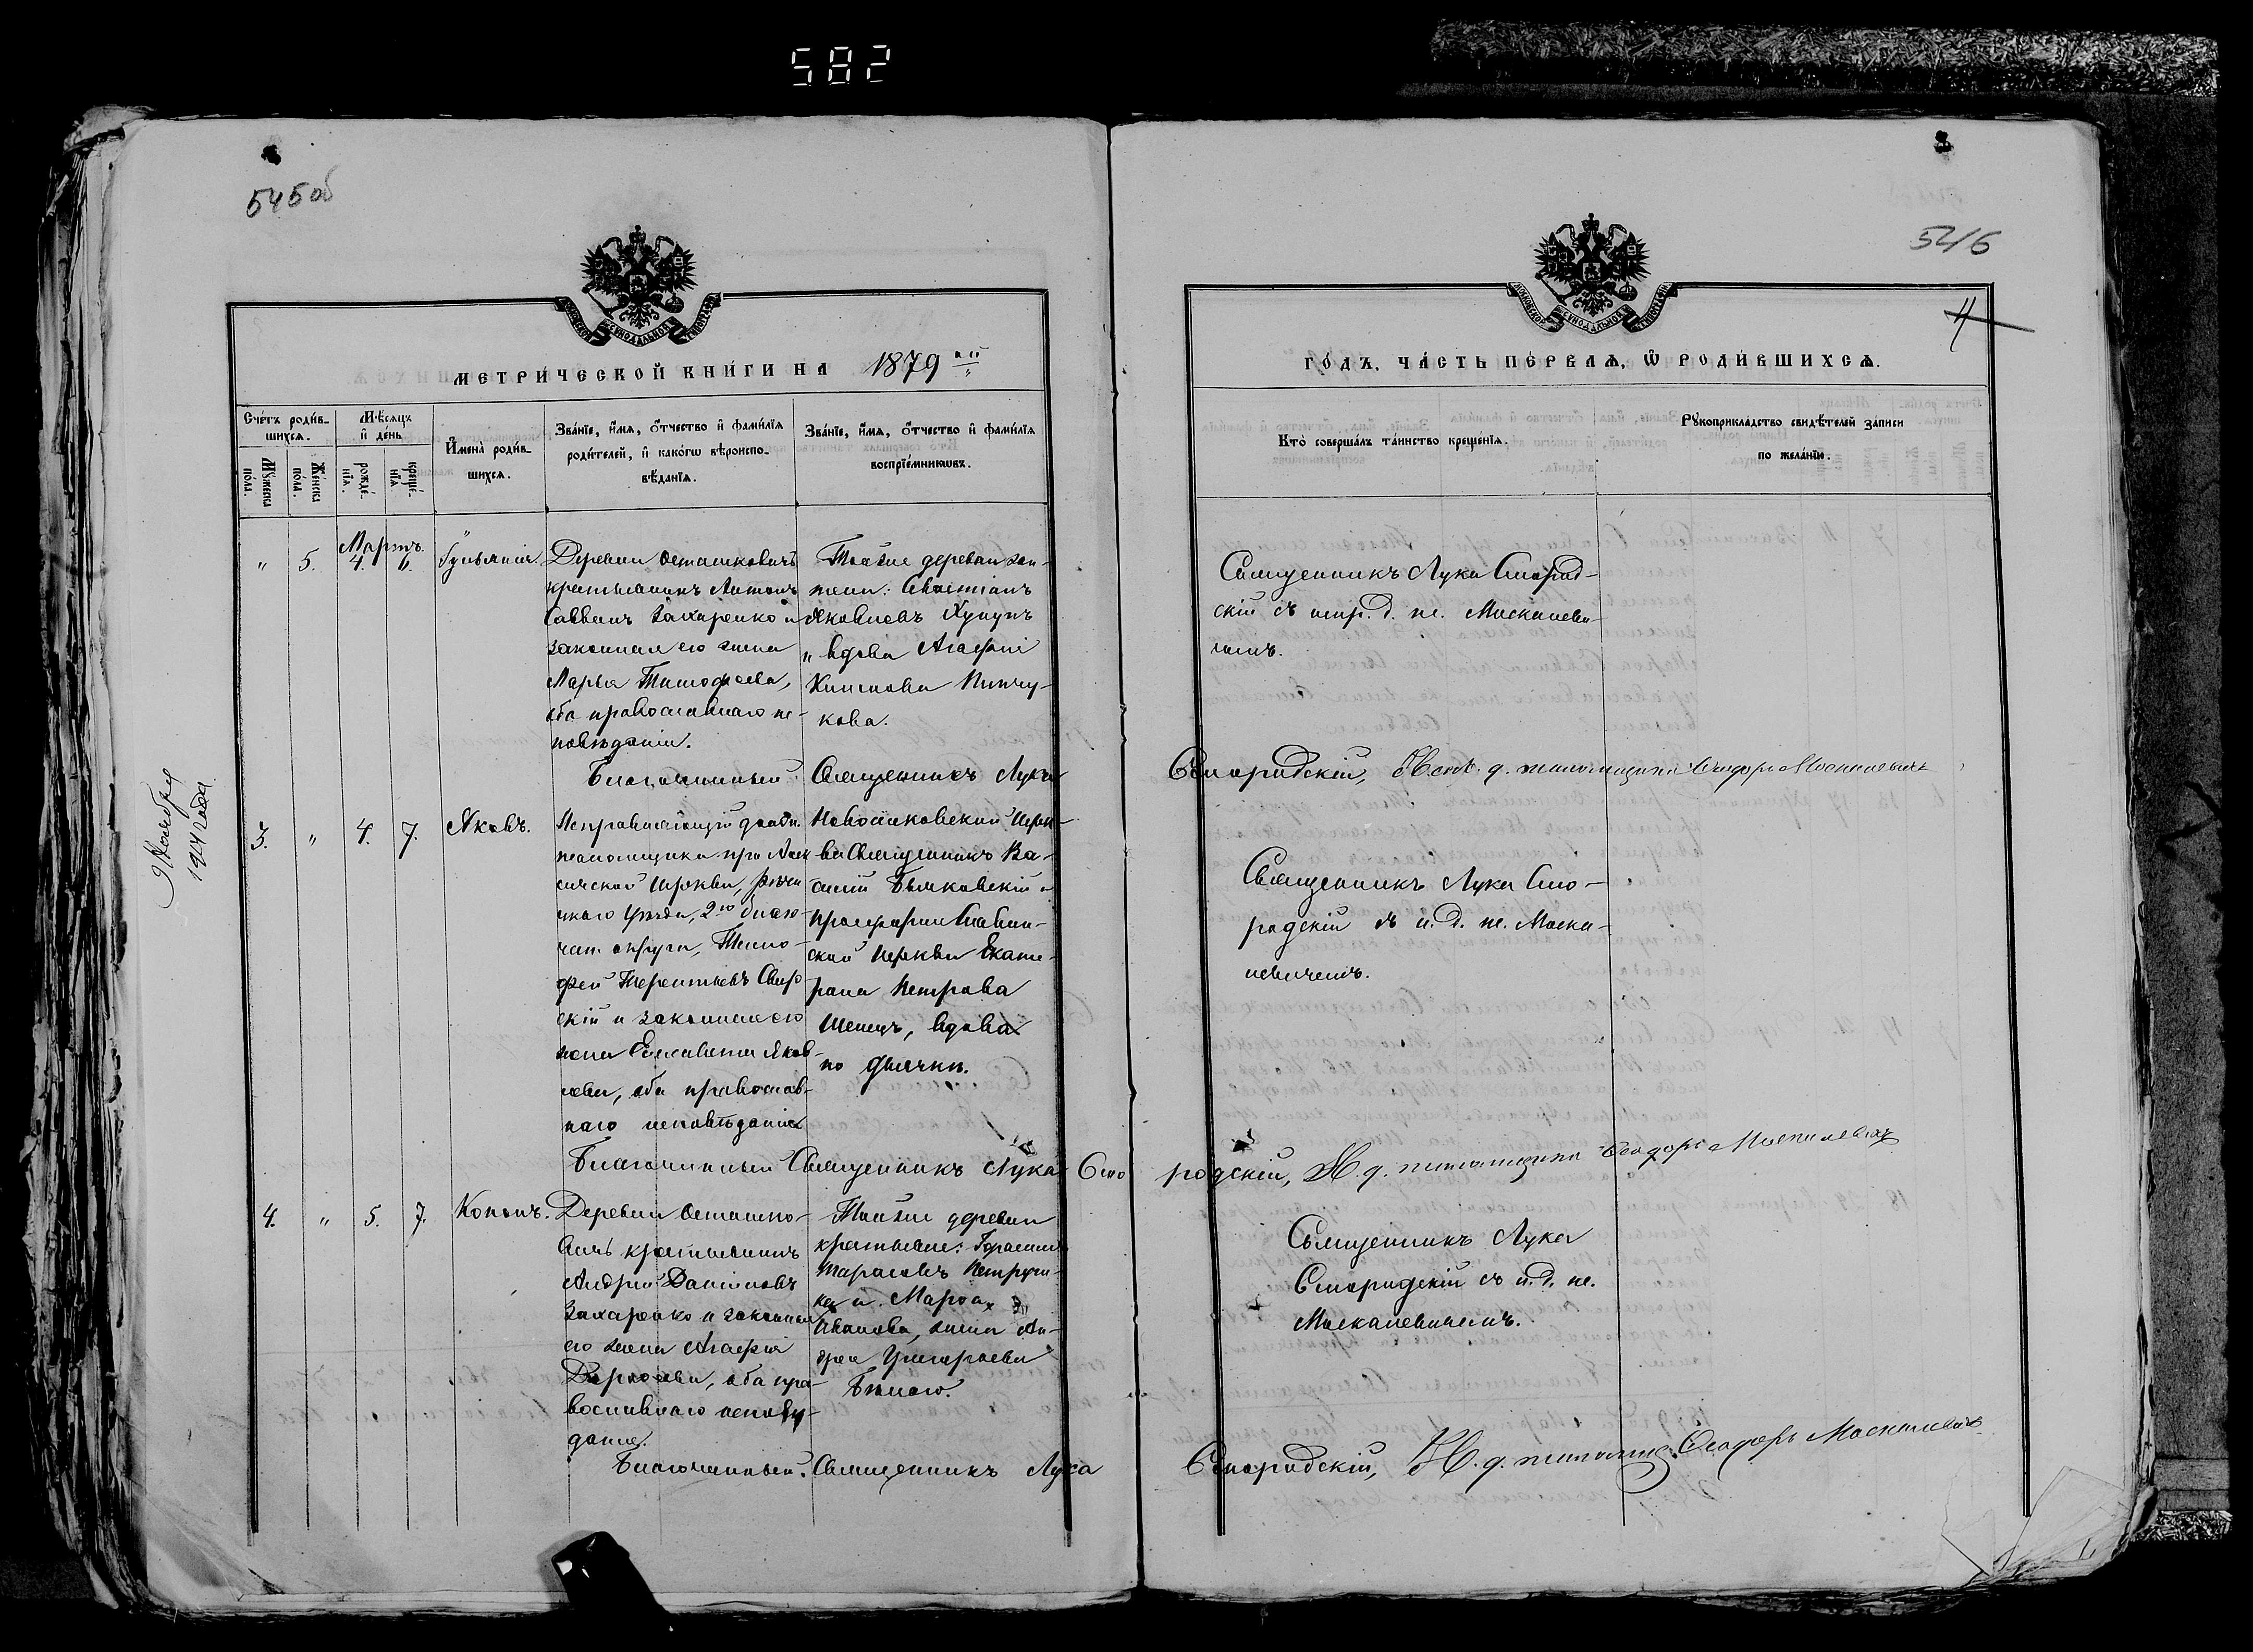 582
545 об
546
4
МЕТРИ́ЧЕСКОЙ КНИ́ГИ НА 1879 ый
ГО́ДЪ, ЧА́СТЬ ПЕ́РВАѦ, Ѿ РОДИ́ВШИХСѦ.
Сче́тъ роди́вшихсѧ.
Мꙋ́жеска по́ла.
Же́нска по́ла.
Мѣ́сѧцъ и҆ де́нь
рожде́нїѧ.
креще́нїѧ
И҆мена̀ роди́вшихсѧ.
Зва́нїе, и҆́мѧ, ѻ҆́тчество и҆ фами́лїѧ
роди́телей, и҆ како́гѡ вѣроиспо-
вѣ́данїѧ.
Зва́нїе, и҆́мѧ, ѻ҆́тчество и҆ фами́лїѧ
воспрїе́мникѡвъ.
Кто̀ соверша́лъ та́инство креще́нїѧ.
Рꙋкоприкла́дство свидѣ́телей за́писи
по жела́нїю.
Мартъ.
" 5. 4. 6.
Деревни Осташковичъ
крестьянинъ Антонъ
Саввинъ Захаренко и
законная его жена
Марья Тимофеева,
оба православнаго ис-
повѣданія.
Тойже деревни жи-
тели: Севастіанъ
Яковлевъ
" вдова Агафія
кова.
Священникъ Лука Смород-
скій съ испр. д. пс. Москалеви-
чемъ.
Благочинный Священникъ Лука
Смородскій, Исп. д. псаломщика Ѳеодоръ Москалевичъ
Ноября
1941 года
3. " 4. 7. Яковъ.
Исправляющій должн.
псаломщика при
церкви,
уѣзда, 2го благо-
чин. округа, Тимо-
фей Терентьевъ
скій и законная его
жена Елисавета Яков-
лева, оба православ-
наго исповѣданія
церк-
ви Священникъ Ва-
силій
ской церкви Екате-
рина Петрова
вдова
Священникъ Лука Смо-
родскій съ и. д. пс. Моска-
левичемъ.
Благочинный Священникъ Лука Смо
родскій, И. д. псаломщика Ѳеодоръ Москалевичъ
4. " 5. 7. Кононъ.
Деревни Осташко-
вичъ крестьянинъ
Андрей Даніиловъ
Захаренко и законная
его жена Агафія
оба пра-
вославнаго исповѣ-
данія.
Тойже деревни
крестьяне: Герасимъ
Тарасовъ
и Марѳа
Иванова, жена Ан-
дрея Григорьева
Бѣлаго.
Священникъ Лука
Смородскій съ и. д. пс.
Москалевичемъ.
Благочинный. Священникъ Лука
Смородскій, И. д. псаломщ. Ѳеодоръ Москалевичъ